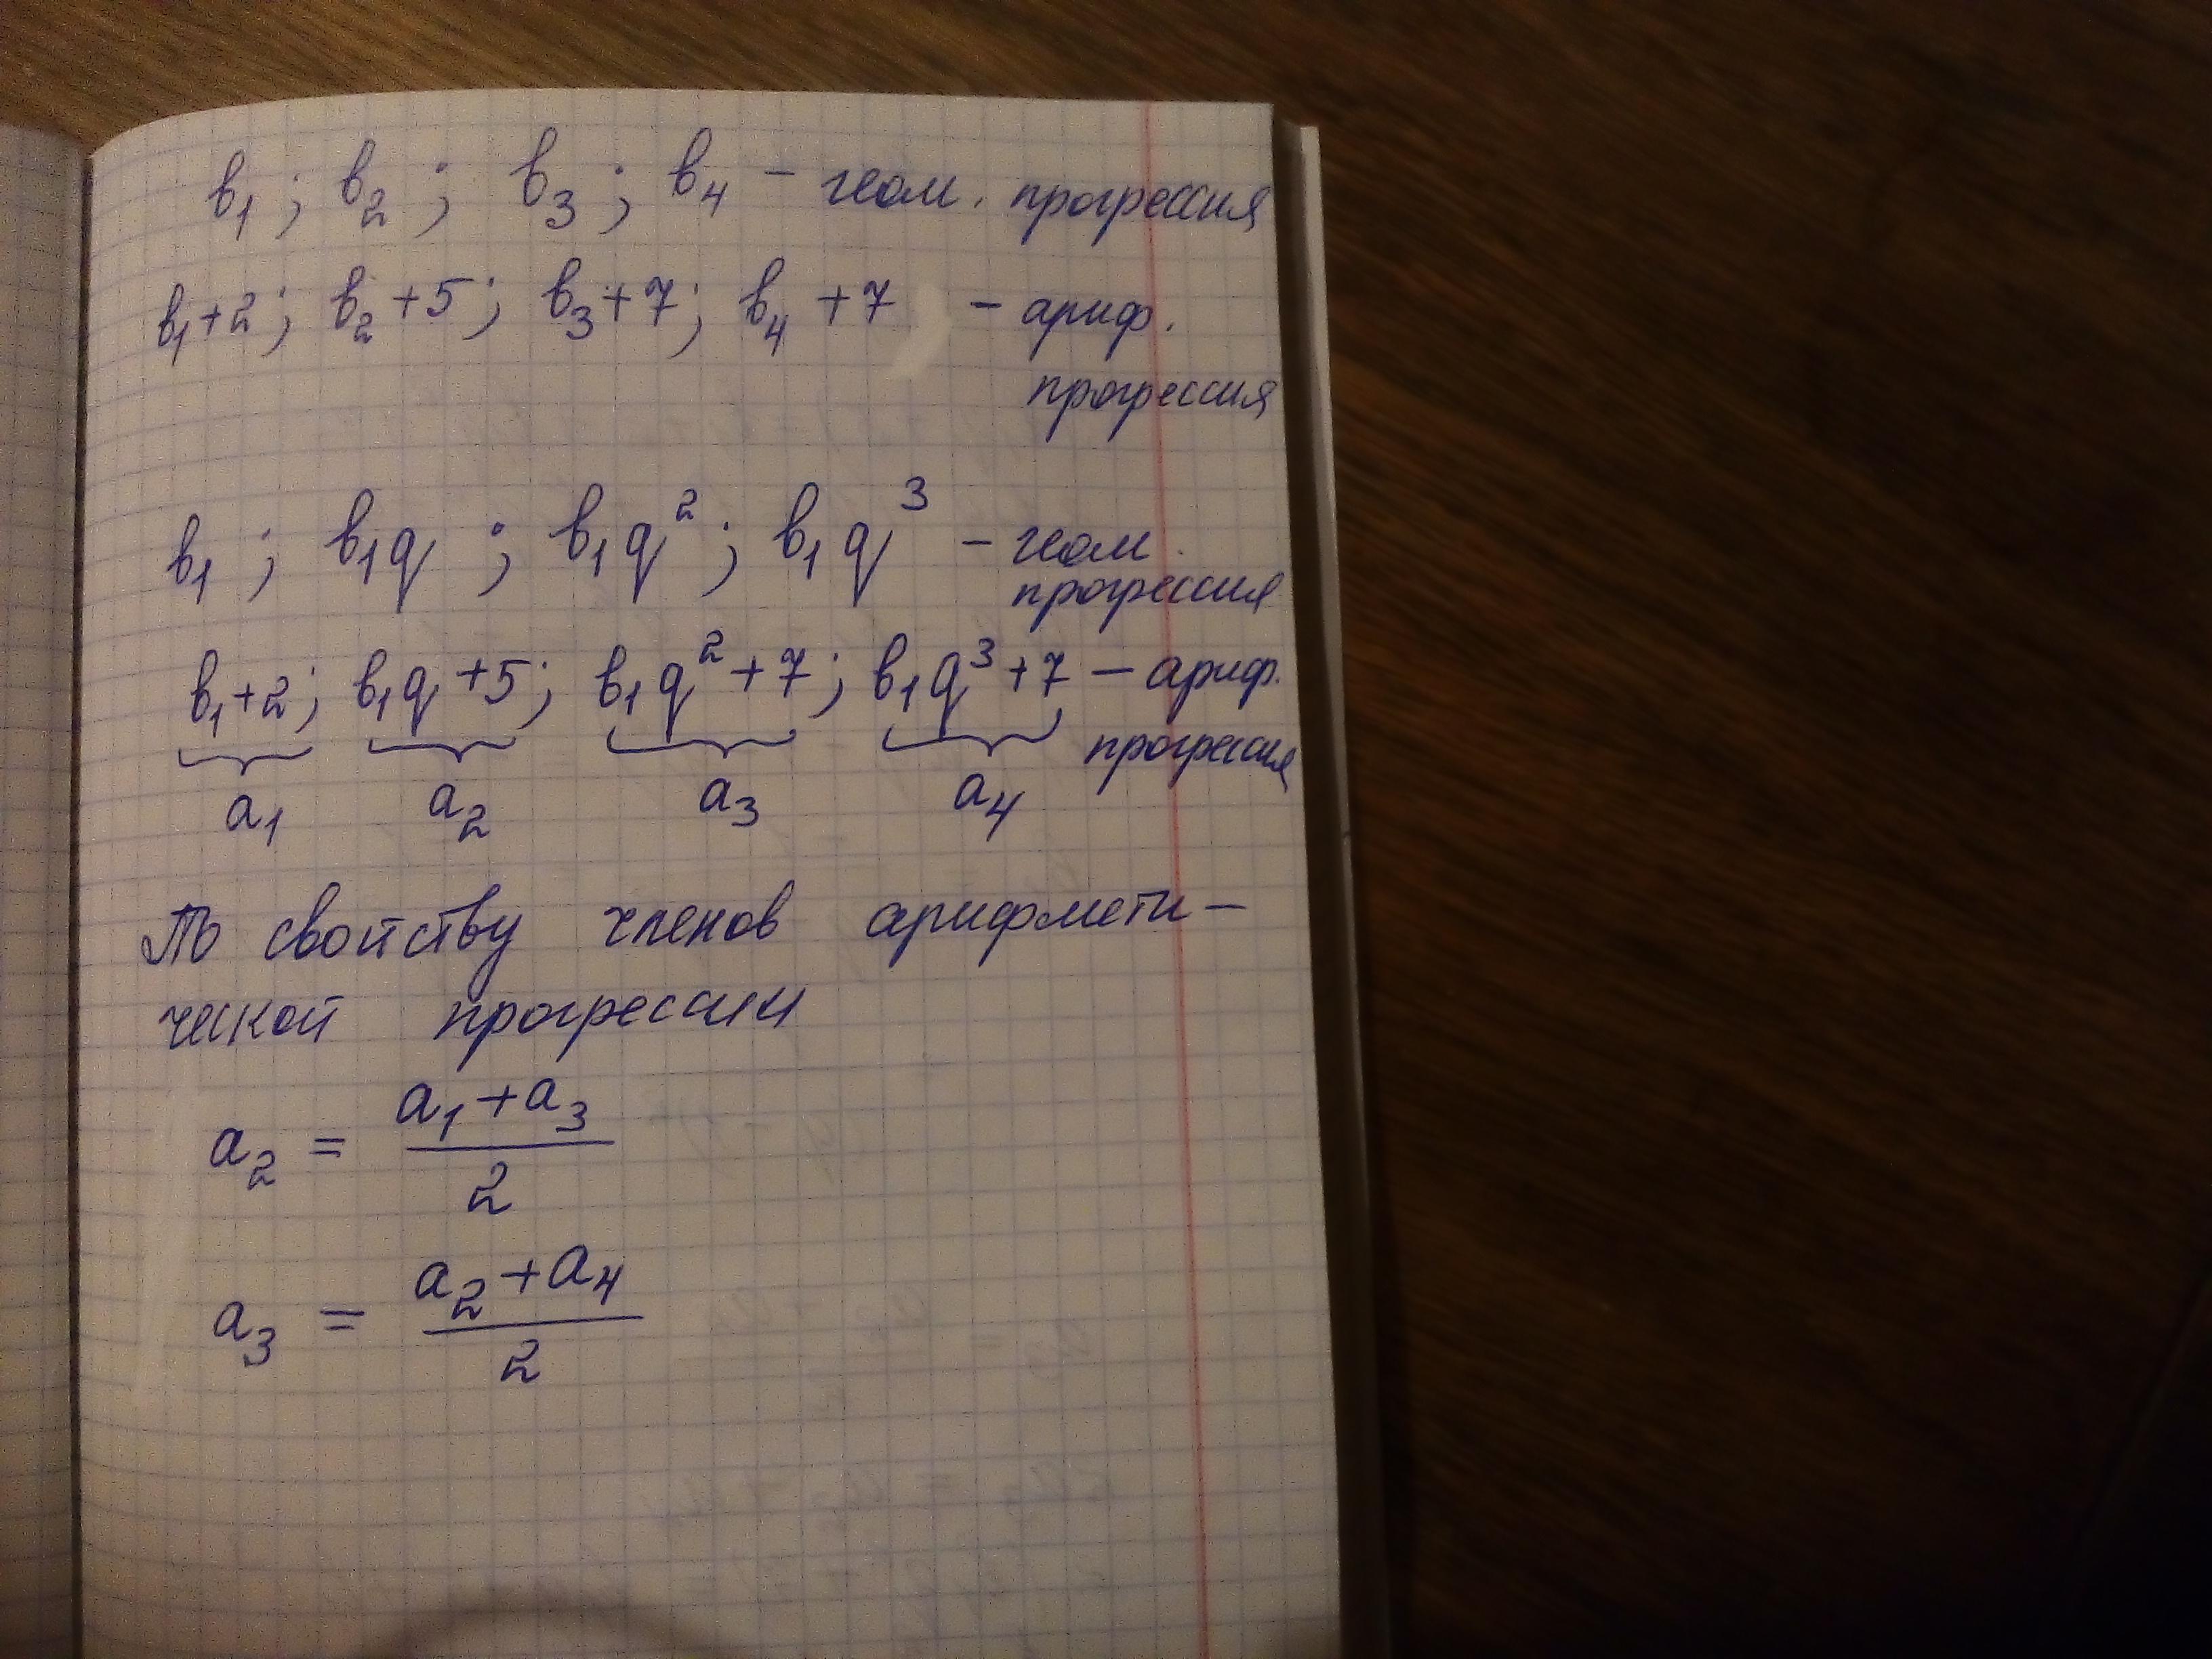 в₁; в₂; в₃; в₄ – геом. прогрессия
в₁+2; в₂+5; в₃+7; в₄+7 – ариф.
прогрессия
в₁; в₁q; в₁q²; в₁q³ – геом.
прогрессия
в₁+2; в₁q+5; в₁q²+7; в₁q³+7 – ариф.
прогрессия
a₁ a₂ a₃ a₄
По свойству членов арифмети–
ческой прогрессии
a₂ = (a₁+a₃)/2
a₃ = (a₂+a₄)/2